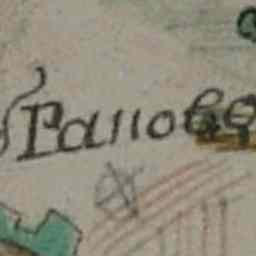 Раново